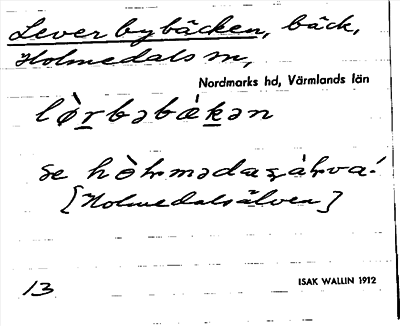 Leverbybäcken, bäck,
Holmedals sn,
Nordmarks hd, Värmlands län
lø̀r̲bəbæ̀k̲ən
se
[Holmedalsälven]
13
ISAK WALLIN 1912